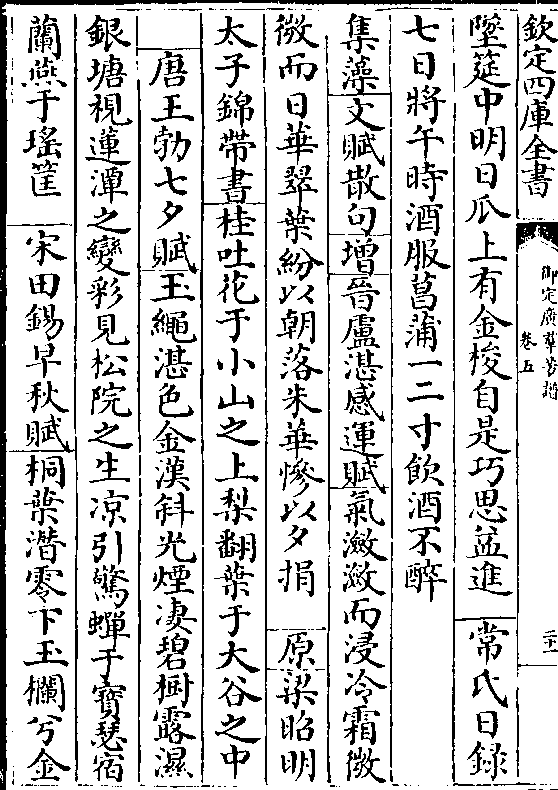 欽定四庫全書
御定廣羣芳譜
卷五
二十
墜筵中明日瓜上有金梭自是巧思益進 常氏日錄
七日將午時酒服菖蒲一二寸飲酒不醉
集藻文賦散句增晉盧湛感運賦氣瀲瀲而浸冷霜微
微而日華翠葉紛以朝落朱華慘以夕捐 原梁昭明
太子錦帶書桂吐花于小山之上梨翻葉于大谷之中
唐王勃七夕賦玉繩湛色金漢斜光煙凄碧樹露濕
銀塘視蓮潭之變彩見松院之生凉引驚蟬于寶瑟宿
蘭燕于瑤筐 宋田錫早秋賦桐葉潛零下玉欄兮金